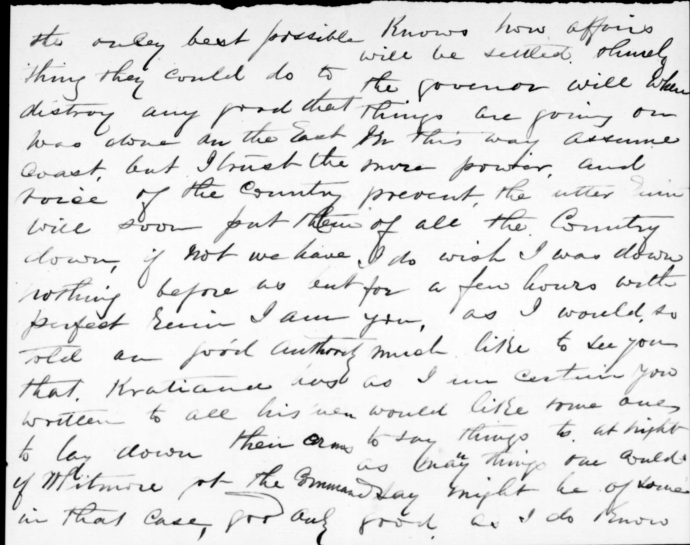 the onley best possible
thing they could do to
distroy any good that
was done on the East
Coast, but I trust the
voice of the Country
will soon put them
down, if not we have
nothing before us but
perfect Ruin I am
told on good authority
that. Kratiana has
written to all his men
to lay down their arms
if Mitmore at the Command
in that case, god only
Knows how affairs
will be settled, Shurely
the govenor will when
things are going on
In this way assume
more power, and
prevent, the utter Ruin
of all the Country
I do wish I was down
for a few hours with
you, as I would, so
much like to see you
as I am certain you
would like some one
to say things to. at night
as many things one could
say might be of some
good. as I do Know